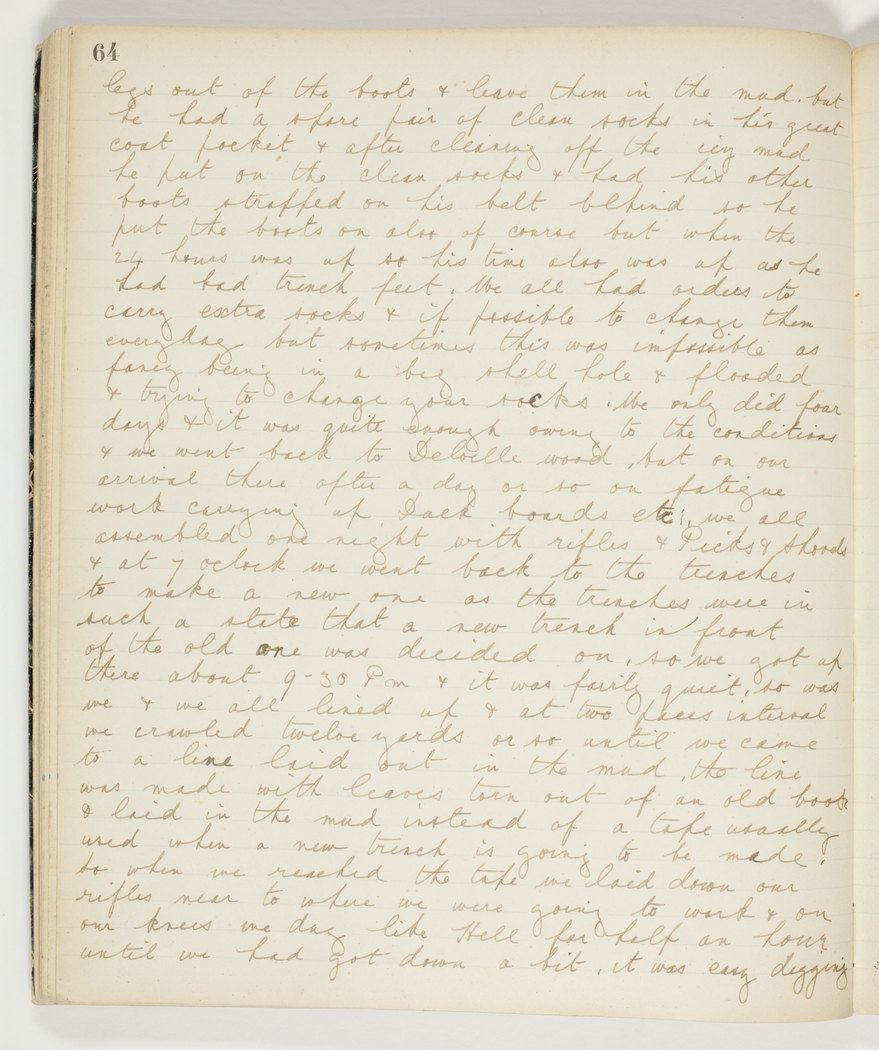 64
legs out of the boots & leave them in the mud. but
he had a spare pair of clean socks in his great
coat pocket & after cleaning off the icy mud
he put on the clean socks & had his other
boots strapped on his belt behind so he
put the boots on also of course but when the
24 hours was up so his time also was up as he
had bad trench feet. We all had orders to
carry extra socks & if possible to change them
everyday but sometimes this was impossible as
fancy being in a big shell hole & flooded
& trying to change your socks. We only did four
days & it was quite enough owing to the conditions
& we went back to Delville wood, but on our
arrival there after a day or so on fatigue
work carrying up Duck boards etc, we all
assembled one night with rifles & Picks & Shovels
& at 7 oclock we went back to the trenches
to make a new one as the trenches were in
such a state that a new trench in front
of the old one was decided on, so we got up
there about 9-30 Pm & it was fairly quiet, so was
we & we all lined up & at two paces interval
we crawled twelve yards or so until we came
to a line laid out in the mud, the line
was made with leaves torn out of an old book
& laid in the mud instead of a tape usually
used when a new trench is going to be made.
So when we reached the tape we laid down our
rifles near to where we were going to work & on
our knees we dug like Hell for half an hour
until we had got down a bit, it was easy digging